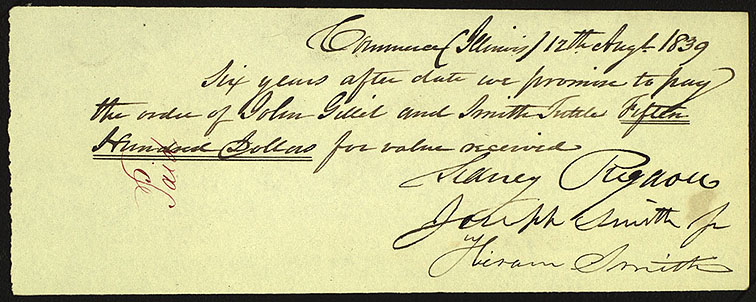 Commerce (Illinois) 12th Augt 1839
Six years after date we promise to pay
the order of John Gillet and Smith Tuttle Fifteen
Hundred Dollars for value received
Paid
Sidney Rigdon
Joseph Smith jr
Hiram Smith